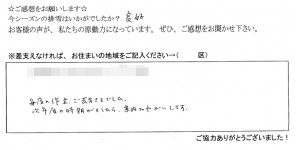 ☆ご感想をお願いします☆
今シーズンの排雪はいかがでしたか？ 良好
お客様の声が、私たちの原動力になっています。ぜひ、ご感想をお聞かせ下さい。
※差支えなければ、お住まいの地域をご記入ください→（　　　区）
毎度の作業、ご苦労さまでした。
次年度の時期がきましたら、案内お願いします。
ご協力ありがとうございました！